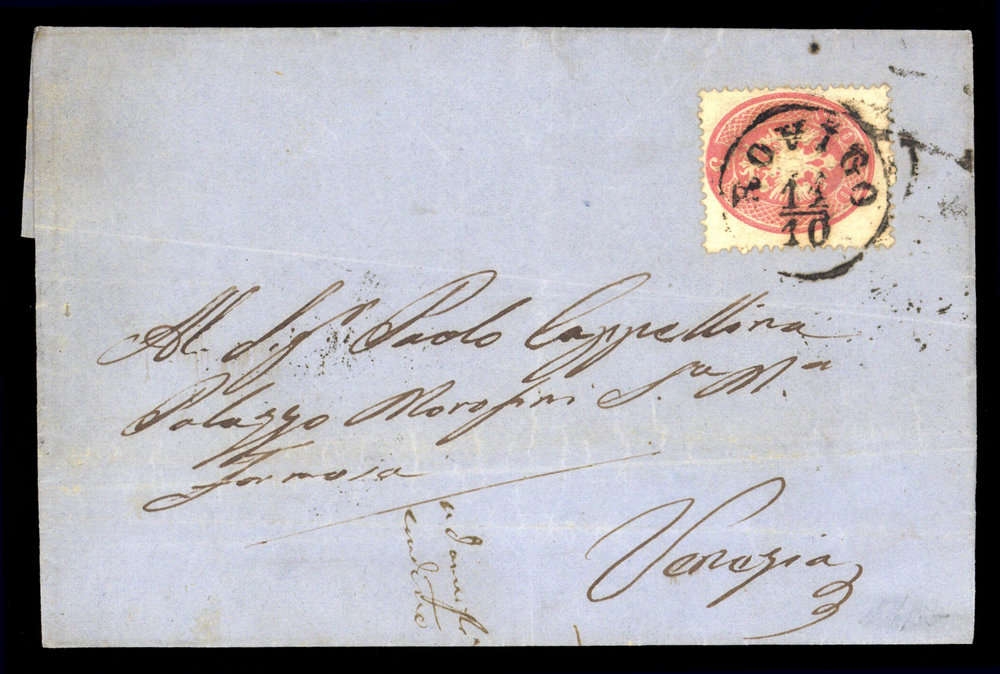 ROVIGO
11
10
Al Sigr Paolo Cappellina
Palazzo Morosini Sta Ma
Formosa
Venezia